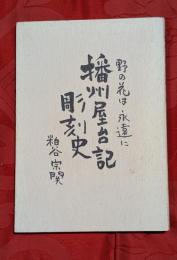 野の花は永遠に
播州屋台記
彫刻史
粕谷宗関